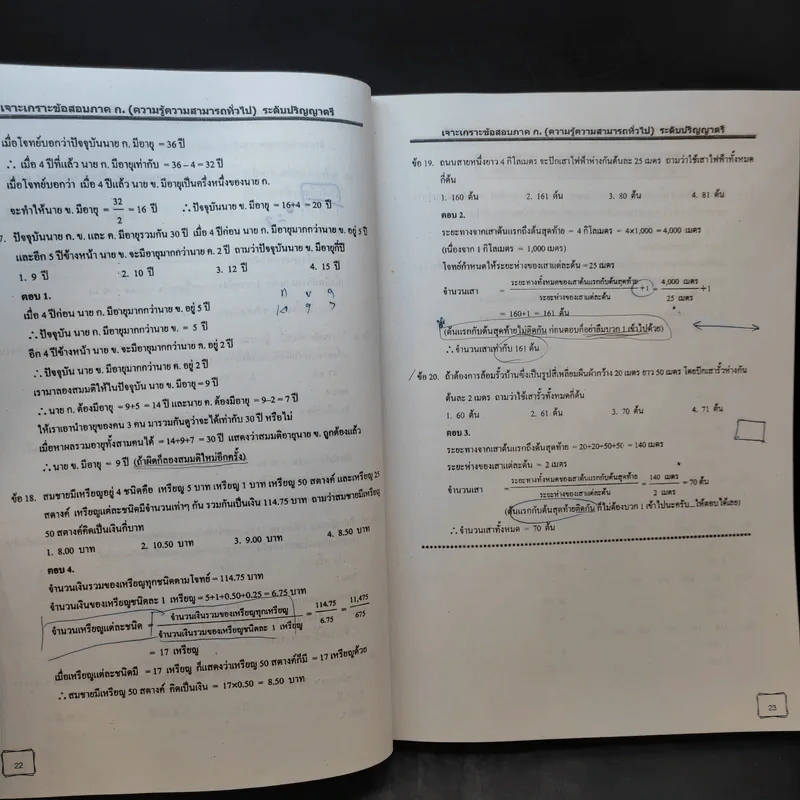 เจาะเกราะข้อสอบภาค ก. (ความรู้ความสามารถทั่วไป) ระดับปริญญาตรี
เมื่อโจทย์บอกว่าปัจจุบันนาย ก. มีอายุ = 36 ปี
∴ เมื่อ 4 ปีที่แล้ว นาย ก. มีอายุเท่ากับ = 36 – 4 = 32 ปี
เมื่อโจทย์บอกว่า เมื่อ 4 ปีแล้ว นาย ข. มีอายุเป็นครึ่งหนึ่งของนาย ก.
จะทำให้นาย ข. มีอายุ = 32/2 = 16 ปี ∴ ปัจจุบันนาย ข. มีอายุ = 16+4 = 20 ปี
7. ปัจจุบันนาย ก. ข. และ ค. มีอายุรวมกัน 30 ปี เมื่อ 4 ปีก่อน นาย ก. มีอายุมากกว่านาย ข. อยู่ 5 ปี
และอีก 5 ปีข้างหน้า นาย ข. จะมีอายุมากกว่านาย ค. 2 ปี ถามว่าปัจจุบันนาย ข. มีอายุกี่ปี
1. 9 ปี 2. 10 ปี 3. 12 ปี 4. 15 ปี
ตอบ 1.
เมื่อ 4 ปีก่อน นาย ก. มีอายุมากกว่านาย ข. อยู่ 5 ปี
∴ ปัจจุบัน นาย ก. มีอายุมากกว่านาย ข. = 5 ปี
อีก 4 ปีข้างหน้า นาย ข. จะมีอายุมากกว่านาย ค. อยู่ 2 ปี
∴ ปัจจุบัน นาย ข. มีอายุมากกว่านาย ค. อยู่ 2 ปี
เรามาลองสมมติให้ในปัจจุบัน นาย ข. มีอายุ = 9 ปี
∴ นาย ก. ต้องมีอายุ = 9+5 = 14 ปี และนาย ค. ต้องมีอายุ = 9–2 = 7 ปี
ให้เราเอานำอายุของคน 3 คน มารวมกันดูว่าจะได้เท่ากับ 30 ปี หรือไม่
เมื่อหาผลรวมอายุทั้งสามคนได้ = 14+9+7 = 30 ปี แสดงว่าสมมติอายุนาย ข. ถูกต้องแล้ว
∴ นาย ข. มีอายุ = 9 ปี (ถ้าผิดก็ลองสมมติใหม่อีกครั้ง)
ข้อ 18. สมชายมีเหรียญอยู่ 4 ชนิดคือ เหรียญ 5 บาท เหรียญ 1 บาท เหรียญ 50 สตางค์ และเหรียญ 25
สตางค์ เหรียญแต่ละชนิดมีจำนวนเท่าๆ กัน รวมกันเป็นเงิน 114.75 บาท ถามว่าสมชายมีเหรียญ
50 สตางค์คิดเป็นเงินกี่บาท
1. 8.00 บาท 2. 10.50 บาท 3. 9.00 บาท 4. 8.50 บาท
ตอบ 4.
จำนวนเงินรวมของเหรียญทุกชนิดตามโจทย์ = 114.75 บาท
จำนวนเงินของเหรียญชนิดละ 1 เหรียญ = 5+1+0.50+0.25 = 6.75 บาท
จำนวนเหรียญแต่ละชนิด = จำนวนเงินรวมของเหรียญทุกเหรียญ/จำนวนเงินรวมของเหรียญชนิดละ 1 เหรียญ = 114.75/6.75 = 11,475/675
= 17 เหรียญ
เมื่อเหรียญแต่ละชนิดมี = 17 เหรียญ ก็แสดงว่าเหรียญ 50 สตางค์ก็มี = 17 เหรียญด้วย
∴ สมชายมีเหรียญ 50 สตางค์ คิดเป็นเงิน = 17×0.50 = 8.50 บาท
22
เจาะเกราะข้อสอบภาค ก. (ความรู้ความสามารถทั่วไป) ระดับปริญญาตรี
ข้อ 19. ถนนสายหนึ่งยาว 4 กิโลเมตร จะปักเสาไฟฟ้าห่างกันต้นละ 25 เมตร ถามว่าใช้เสาไฟฟ้าทั้งหมด
กี่ต้น
1. 160 ต้น 2. 161 ต้น 3. 80 ต้น 4. 81 ต้น
ตอบ 2.
ระยะทางจากเสาต้นแรกถึงต้นสุดท้าย = 4 กิโลเมตร = 4×1,000 = 4,000 เมตร
(เนื่องจาก 1 กิโลเมตร = 1,000 เมตร)
โจทย์กำหนดให้ระยะห่างของเสาแต่ละต้น = 25 เมตร
จำนวนเสา = ระยะทางทั้งหมดของเสาต้นแรกกับต้นสุดท้าย/ระยะห่างของเสาแต่ละต้น +1 = 4,000 เมตร/25 เมตร +1
= 160+1 = 161 ต้น
(ต้นแรกกับต้นสุดท้ายไม่ติดกัน ก่อนตอบก็อย่าลืมบวก 1 เข้าไปด้วย)
∴ จำนวนเสาเท่ากับ 161 ต้น
ข้อ 20. ถ้าต้องการล้อมรั้วบ้านซึ่งเป็นรูปสี่เหลี่ยมผืนผ้ากว้าง 20 เมตร ยาว 50 เมตร โดยปักเสารั้วห่างกัน
ต้นละ 2 เมตร ถามว่าใช้เสารั้วทั้งหมดกี่ต้น
1. 60 ต้น 2. 61 ต้น 3. 70 ต้น 4. 71 ต้น
ตอบ 3.
ระยะทางจากเสาต้นแรกถึงต้นสุดท้าย = 20+20+50+50 = 140 เมตร
ระยะห่างของเสาแต่ละต้น = 2 เมตร
จำนวนเสา = ระยะทางทั้งหมดของเสาต้นแรกกับต้นสุดท้าย/ระยะห่างของเสาแต่ละต้น = 140 เมตร/2 เมตร = 70 ต้น
(ต้นแรกกับต้นสุดท้ายติดกัน ก็ไม่ต้องบวก 1 เข้าไปนะครับ...ให้ตอบได้เลย)
∴ จำนวนเสาทั้งหมด = 70 ต้น
23